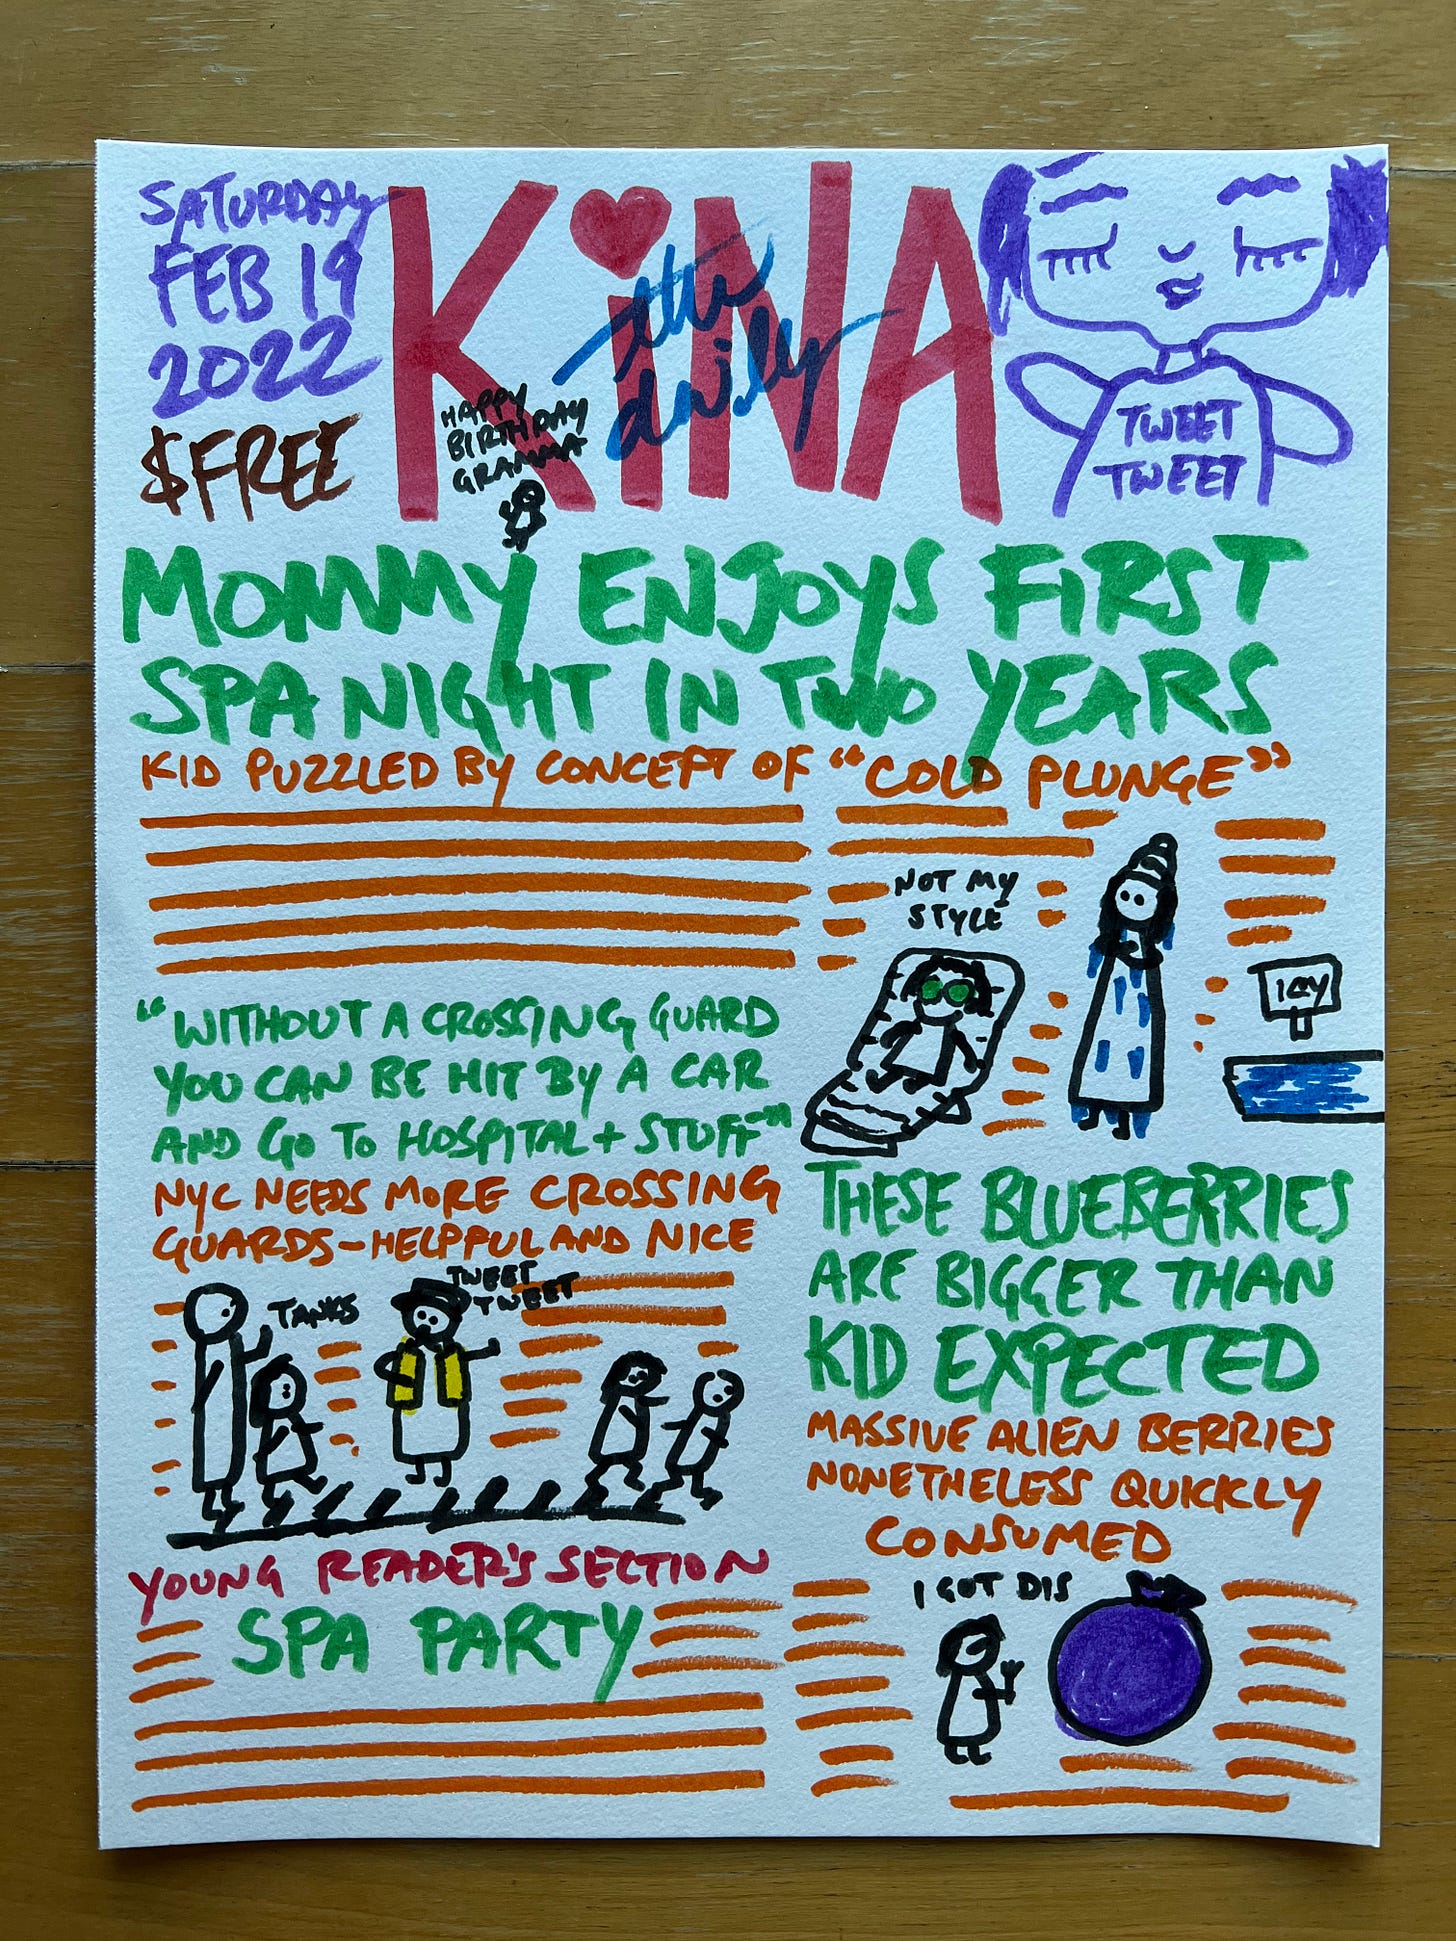 SATURDAY
FEB 19
2022
$FREE
KiNA
the
daily
HAPPY
BIRTHDAY
GRAMMA
TWEET
TWEET
MOMMY ENJOYS FIRST
SPA NIGHT IN TWO YEARS
KID PUZZLED BY CONCEPT OF "COLD PLUNGE"
NOT MY
STYLE
ICY
"WITHOUT A CROSSING GUARD
YOU CAN BE HIT BY A CAR
AND GO TO HOSPITAL + STUFF"
NYC NEEDS MORE CROSSING
GUARDS-HELPFUL AND NICE
TANKS
TWEET
TWEET
THESE BLUEBERRIES
ARE BIGGER THAN
KID EXPECTED
MASSIVE ALIEN BERRIES
NONETHELESS QUICKLY
CONSUMED
I GOT DIS
YOUNG READER'S SECTION
SPA PARTY